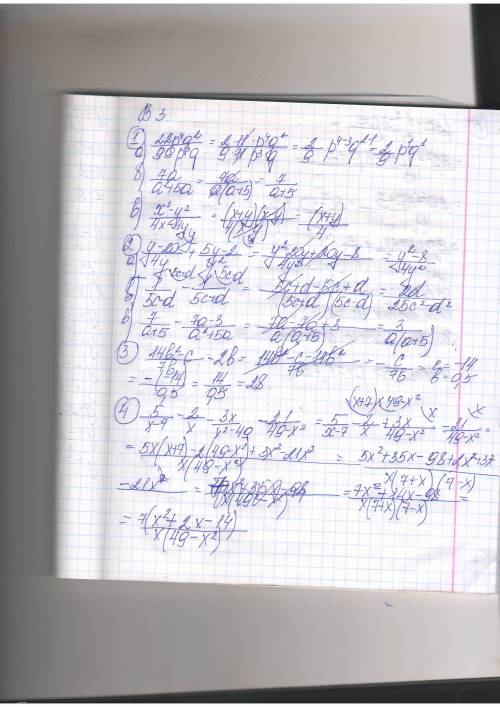 В 3
1 a) 22p⁴q²/99p³q = 2·11·p⁴q²/9·11·p³q = 2/9 p⁴⁻³q²⁻¹ = 2/9 p¹q¹
б) 7a/a²+5a = 7a/a(a+5) = 7/a+5
в) x²-y²/4x-4y = (x+y)(x-y)/4(x-y) = (x+y)/4
2 a) y-20/4y + 5y-2/y² = y²-20y+20y-8/4y² = y²-8/4y²
б) 1/5c-d - 1/5c+d = 5c+d-5c+d/(5c+d)(5c-d) = 2d/25c²-d²
в) 7/a+5 - 7a-3/a²+5a = 7a-7a+3/a(a+5) = 3/a(a+5)
3 14b²-c/7b - 2b = 14b²-c-14b²/7b = -c/7b = c=-14 b=0,5
= 14/0,5 = 28
4 5/x-7 - 2/x - 3x/x²-49 - 21/49-x² = 5/x-7 - 2/x + 3x/49-x² - 21/49-x² =
= 5x(x+7)-2(49-x²)+3x²-21x²/x(49-x²) = 5x²+35x-98+2x²+3x²
-21x² = 7x²+14x-98/x(7+x)(7-x) =
= 7(x²+2x-14)/x(49-x²)